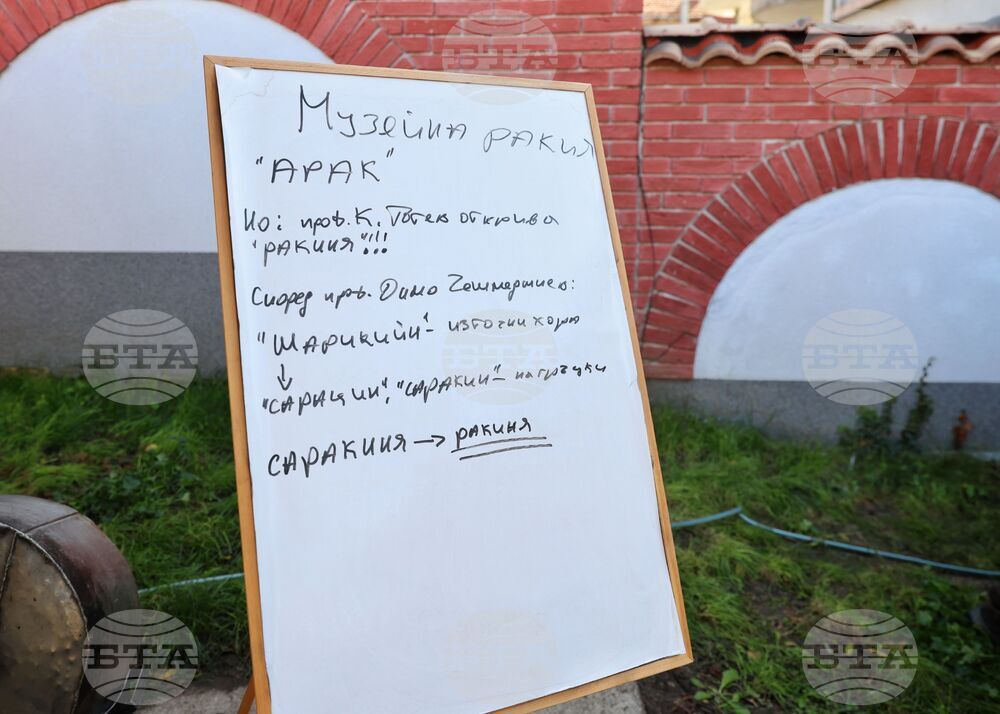 Музейна ракия
"АРАК"
Но: проф. К. Тотев открива
"РАКИНЯ"!!!
Според проф. Димо Чешмеджиев:
"ШАРИКИЙН" - източни хора
↓
"САРАЦИН", "САРАКИН" - на гръцки
САРАКИНЯ → РАКИНЯ
БТА
БТА
БТА
БТА
БТА
БТА